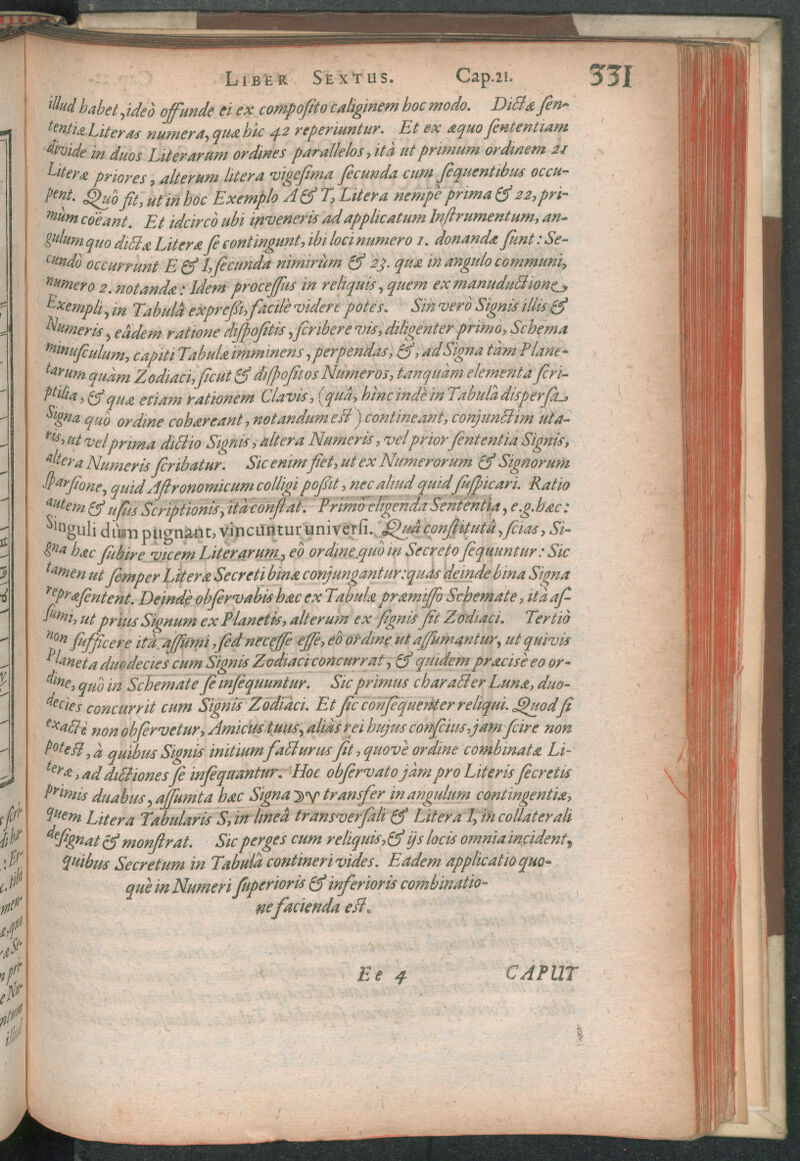 LIBER SEXTUS. Cap.21. 331
illud habet, ideò offunde ei ex composito caliginem hoc modo. Dictæ sen-
tentiæ Literas numera, quæ hîc 42 reperiuntur. Et ex æquo sententiam
divide in duos Literarum ordines parallelos, ità ut primum ordinem 21
Literæ priores, alterum litera vigesima secunda cum sequentibus occu-
pent. Quo fit, ut in hoc Exemplo A & T, Litera nempè prima & 22, pri-
mùm coëant. Et idcircò ubi inveneris ad applicatum Instrumentum, an-
gulum quo dictæ Literæ se contingunt, ibi loci numero 1. donandæ sunt: Se-
cundò occurrunt E & I, secunda nimirùm & 23. quæ in angulo communi,
numero 2. notandæ: Idem processus in reliquis, quem ex manuductione
Exempli, in Tabulâ expressi, facilè videre potes. Sin verò Signis illis &
Numeris, eâdem ratione dispositis, scribere vis, diligenter primo, Schema
minusculum, capiti Tabulæ imminens, perpendas, &, ad Signa tàm Plane-
tarum quàm Zodiaci, sicut & dispositos Numeros, tanquàm elementa scri-
ptilia, & quæ etiam rationem Clavis, (quâ, hinc indè in Tabulâ dispersa
Signa quo ordine cohæreant, notandum est) contineant, conjunctim uta-
ris, ut vel prima dictio Signis, altera Numeris, vel prior sententia Signis,
altera Numeris scribatur. Sic enim fiet, ut ex Numerorum & Signorum
sparsione, quid Astronomicum colligi possit, nec aliud quid suspicari. Ratio
autem & usus Scriptionis, ità constat. Primò eligenda Sententia, e.g. hæc:
Singuli dùm pugnant, vincuntur universi. Quâ constitutâ, scias, Si-
gna hæc subire vicem Literarum, eò ordine quò in Secreto sequuntur: Sic
tamen ut semper Literæ Secreti binæ conjungantur: quas deinde bina Signa
repræsentent. Deindè observabis hæc ex Tabulæ præmisso Schemate, ità as-
sumi, ut prius Signum ex Planetis, alterum ex signis sit Zodiaci. Tertiò
non sufficere ità assumi, sed necesse esse, eò ordine ut assumantur, ut quivis
Planeta duodecies cum Signis Zodiaci concurrat, & quidem præcisè eo or-
dine, quò in Schemate se insequuntur. Sic primus character Lunæ, duo-
decies concurrit cum Signis Zodiaci. Et sic consequenter reliqui. Quod si
exactè non observetur, Amicus tuus, aliàs rei hujus conscius, jam scire non
potest, à quibus Signis initium facturus sit, quovè ordine combinatæ Li-
teræ, ad dictiones se insequantur. Hoc observato jàm pro Literis secretis
primis duabus, assumta hæc Signa ☽♈ transfer in angulum contingentiæ,
quem Litera Tabularis S, in lineâ transversali & Litera I, in collaterali
designat & monstrat. Sic perges cum reliquis, & ijs locis omnia incident,
quibus Secretum in Tabulâ contineri vides. Eadem applicatio quo-
què in Numeri superioris & inferioris combinatio-
ne facienda est.
Ee 4 CAPUT